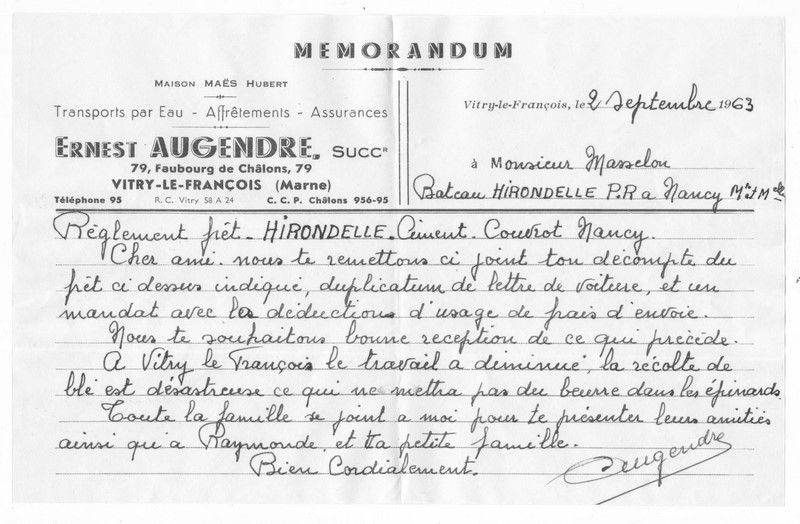 MEMORANDUM
MAISON MAËS HUBERT
Transports par Eau - Affrêtements - Assurances
ERNEST AUGENDRE, SUCCR
79, Faubourg de Châlons, 79
VITRY-LE-FRANÇOIS (Marne)
Téléphone 95 R. C. Vitry 58 A 24 C. C. P. Châlons 956-95
Vitry-le-François, le 2 Septembre 1963
à Monsieur Masselon
Bateau HIRONDELLE P.R a Nancy Mt M
Règlement frêt - HIRONDELLE - Ciment - Couvrot Nancy.
Cher ami. nous te remettons ci joint ton décompte du
frêt ci dessus indiqué, duplicatum de lettre de voiture, et un
mandat avec les déductions d'usage de frais d'envoie.
Nous te souhaitons bonne reception de ce qui précède.
A Vitry le François le travail a diminué, la récolte de
blé est désastreuse ce qui ne mettra pas du beurre dans les épinards
Toute la famille se joint a moi pour te présenter leurs amitiés
ainsi qu'a Raymonde. et ta petite famille.
Bien Cordialement.
Augendre